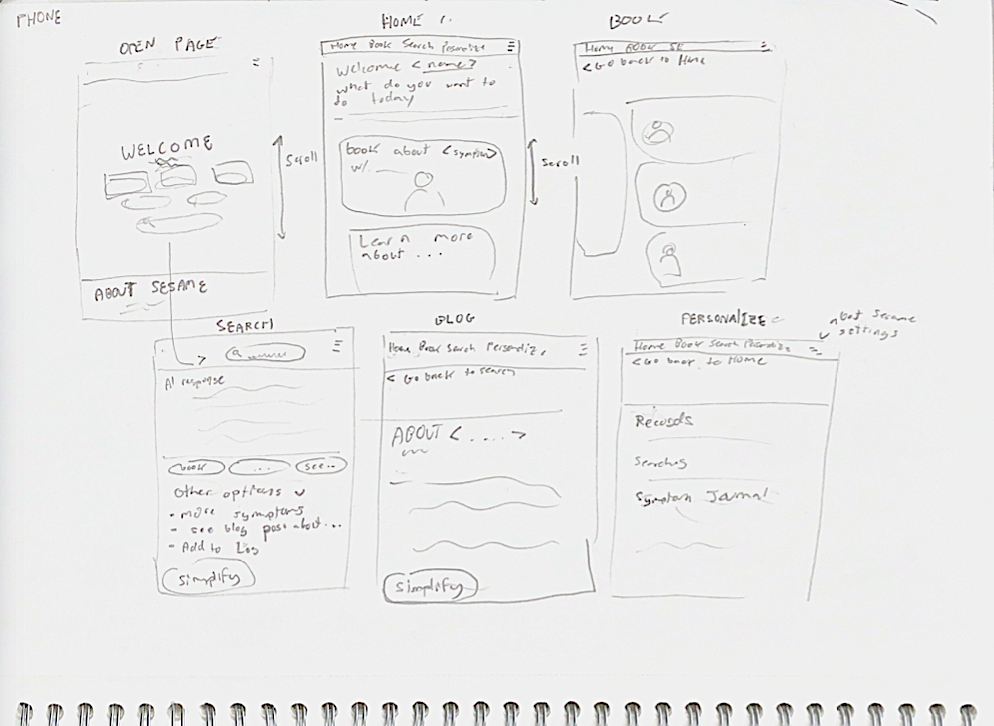 PHONE
OPEN PAGE
WELCOME
Scroll
ABOUT SESAME
HOME
Home Book Search Personalize
Welcome <name>
what do you want to
do today
book about <symptom>
w/.
Learn more
about ...
Scroll
BOOK
Home BOOK SE
< Go back to Home
SEARCH
AI response
book
...
see..
Other options
• more symptoms
- see blog post about...
- Add to Log
Simplify
BLOG
Home Book Search Personalize
< Go back to search
ABOUT <....>
Simplify
PERSONALIZE
about Sesame
settings
Home Book Search Personalize
< Go back to Home
Records
Searches
Symptom Journal